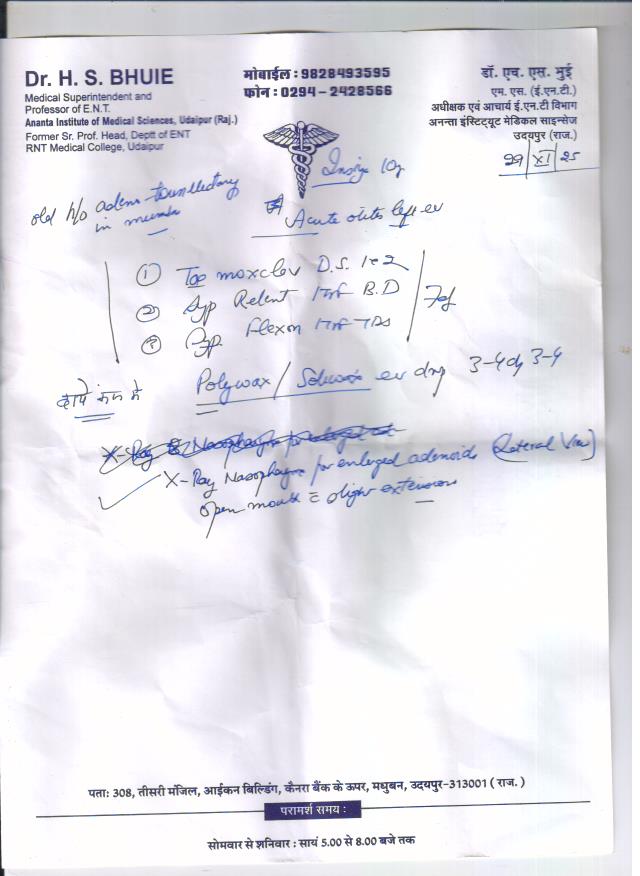 Dr. H. S. BHUIE
Medical Superintendent and
Professor of E.N.T.
Ananta Institute of Medical Sciences, Udaipur (Raj.)
Former Sr. Prof. Head, Deptt of ENT
RNT Medical College, Udaipur
मोबाईल : 9828493595
फोन : 0294-2428566
डॉ. एच. एस. भुई
एम. एस. (ई.एन.टी.)
अधीक्षक एवं आचार्य ई.एन.टी विभाग
अनन्ता इंस्टिट्यूट मेडिकल साइन्सेज
उदयपुर (राज.)
29/XI/25
old h/o adeno-tonsillectomy
in
Acute otitis left ear
① Tab moxclav D.S. 1
② Syp Relent B.D
③ Syp Flexon TDS
Polywax / ear drop 3-4 3-4
X-Ray Nasopharynx for enlarged adenoids (Lateral View)
open mouth c slight extension
पताः 308, तीसरी मंजिल, आईकन बिल्डिंग, कैनरा बैंक के ऊपर, मधुबन, उदयपुर-313001 ( राज. )
परामर्श समय :
सोमवार से शनिवार : सायं 5.00 से 8.00 बजे तक